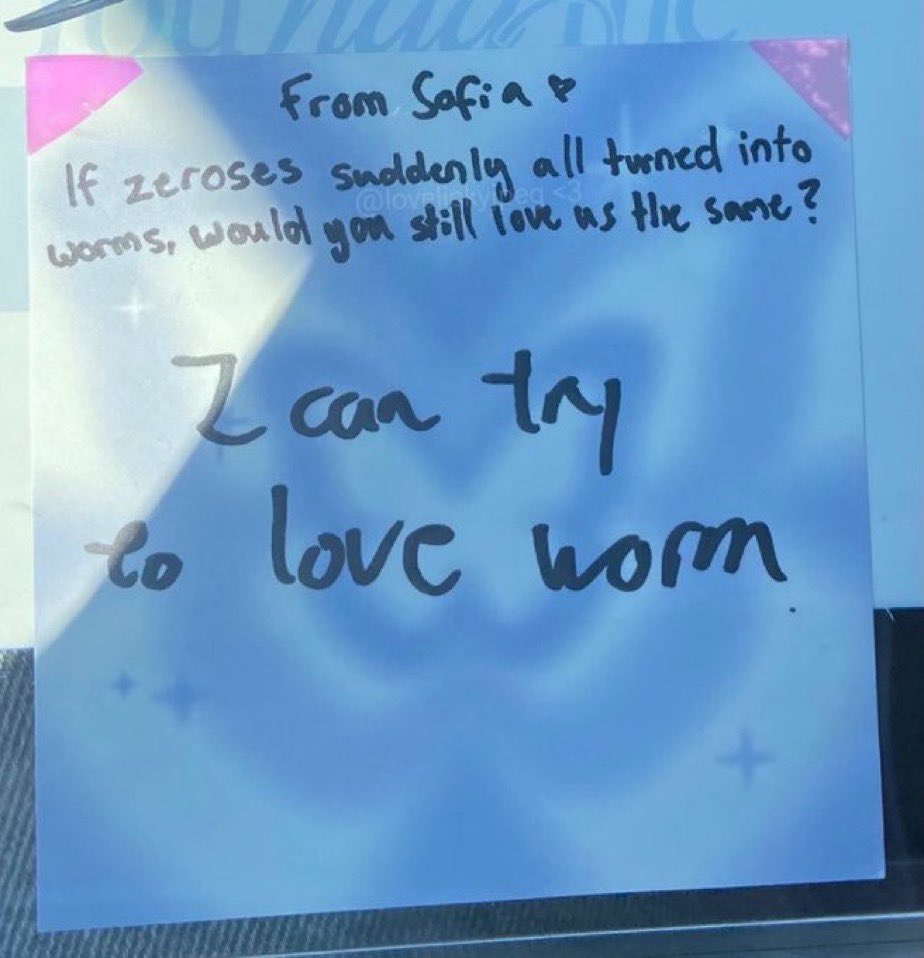 From Sofia ♡
If zeroses suddenly all turned into
worms, would you still love us the same?
I can try
to love worm.